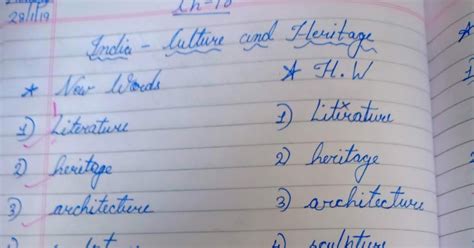 28/1/19 Ch-18
India - Culture and Heritage
* New Words * H.W
1) Literature 1) Literature
2) heritage 2) heritage
3) architecture 3) architecture
4) sculpture